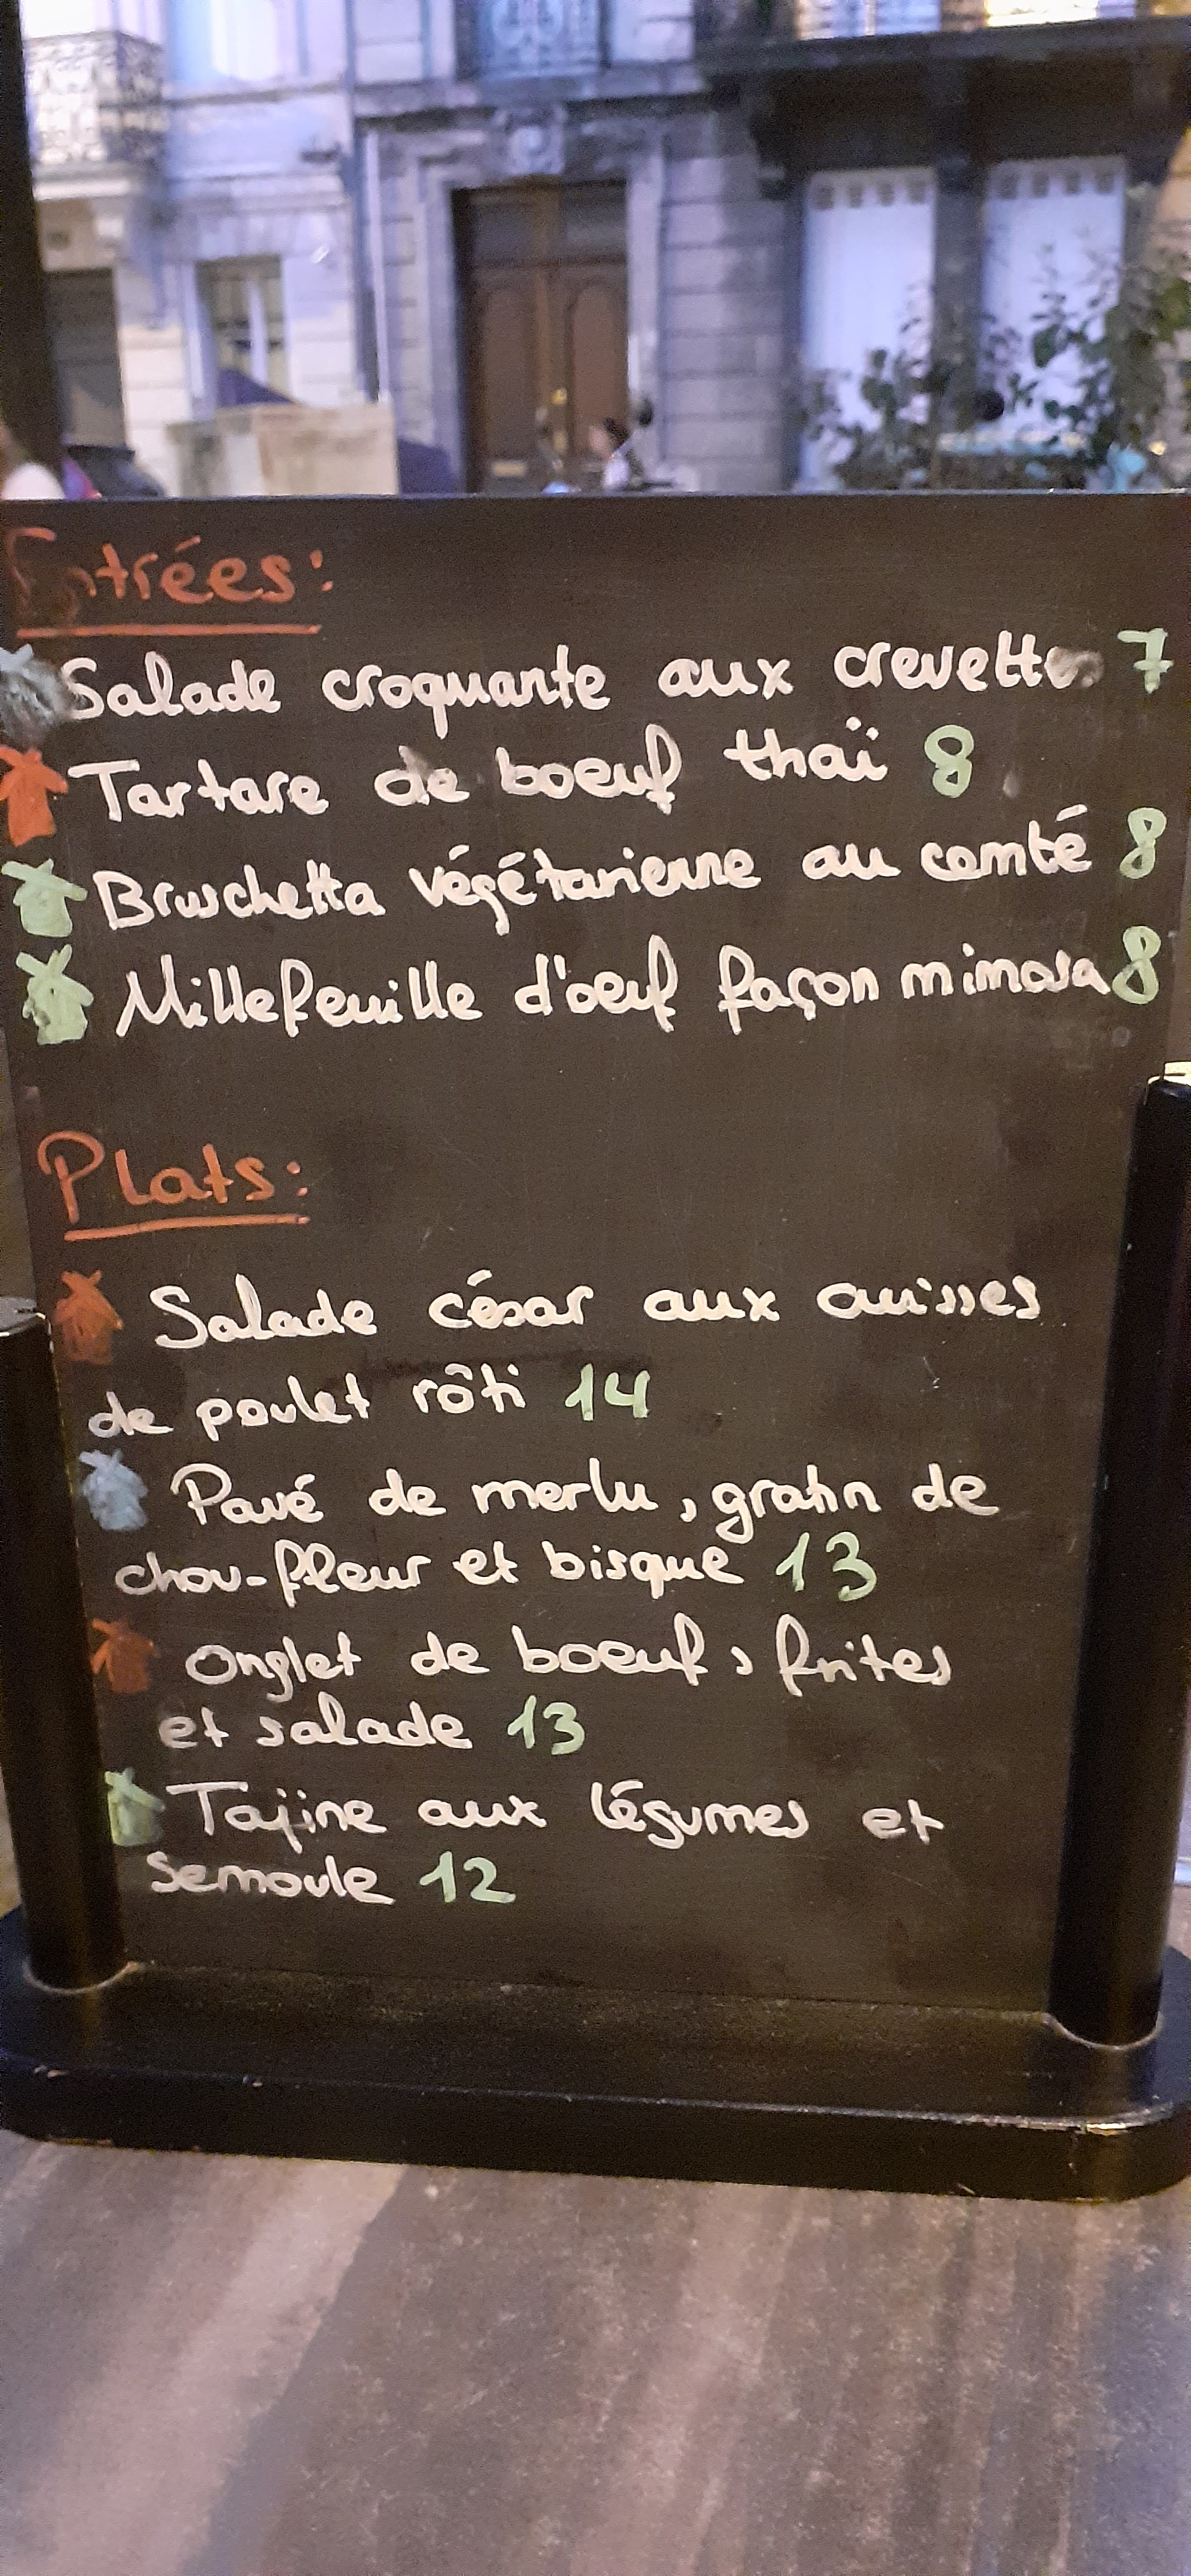 Entrées:
Salade croquante aux crevettes 7
Tartare de boeuf thaï 8
Bruschetta végétarienne au comté 8
Millefeuille d'oeuf façon mimosa 8
Plats:
Salade césar aux cuisses
de poulet rôti 14
Pavé de merlu, gratin de
chou-fleur et bisque 13
Onglet de boeuf, frites
et salade 13
Tajine aux légumes et
semoule 12